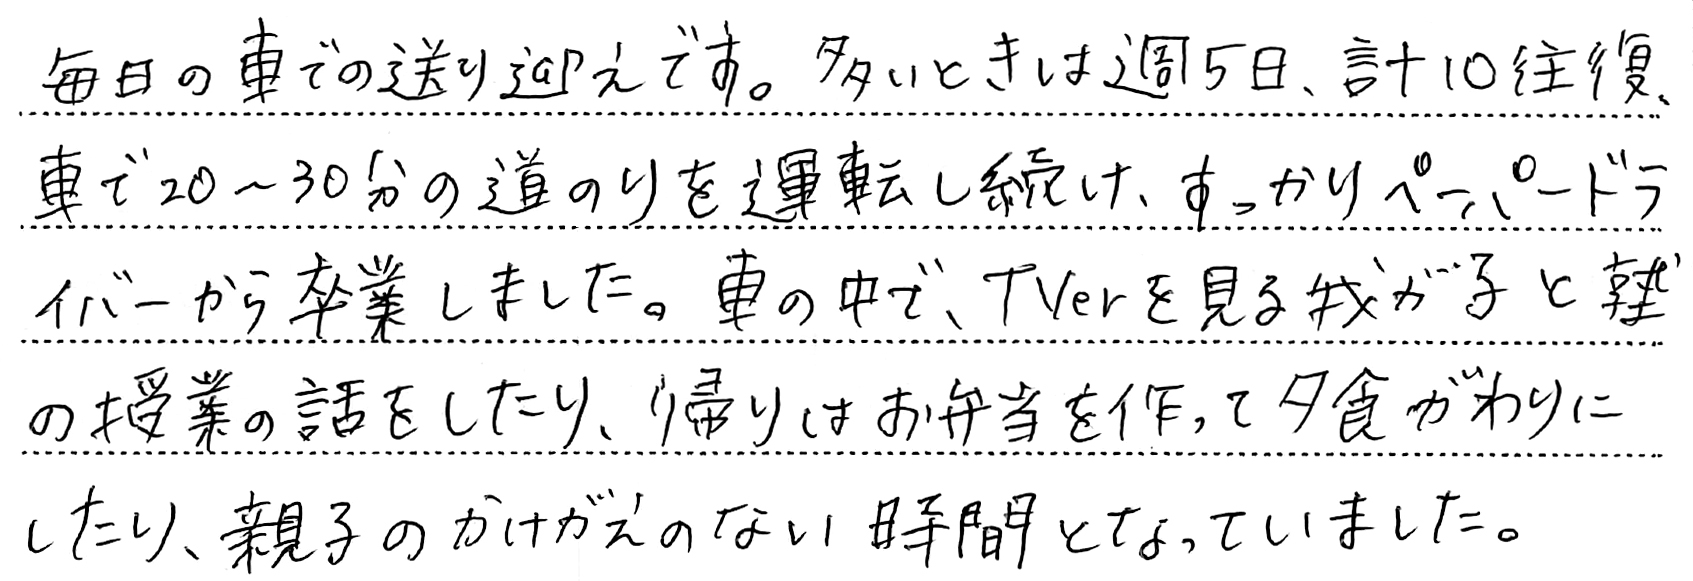 毎日の車での送り迎えです。多いときは週5日、計10往復、
車で20～30分の道のりを運転し続け、すっかりペーパードラ
イバーから卒業しました。車の中で、TVerを見る我が子と塾
の授業の話をしたり、帰りはお弁当を作って夕食がわりに
したり、親子のかけがえのない時間となっていました。